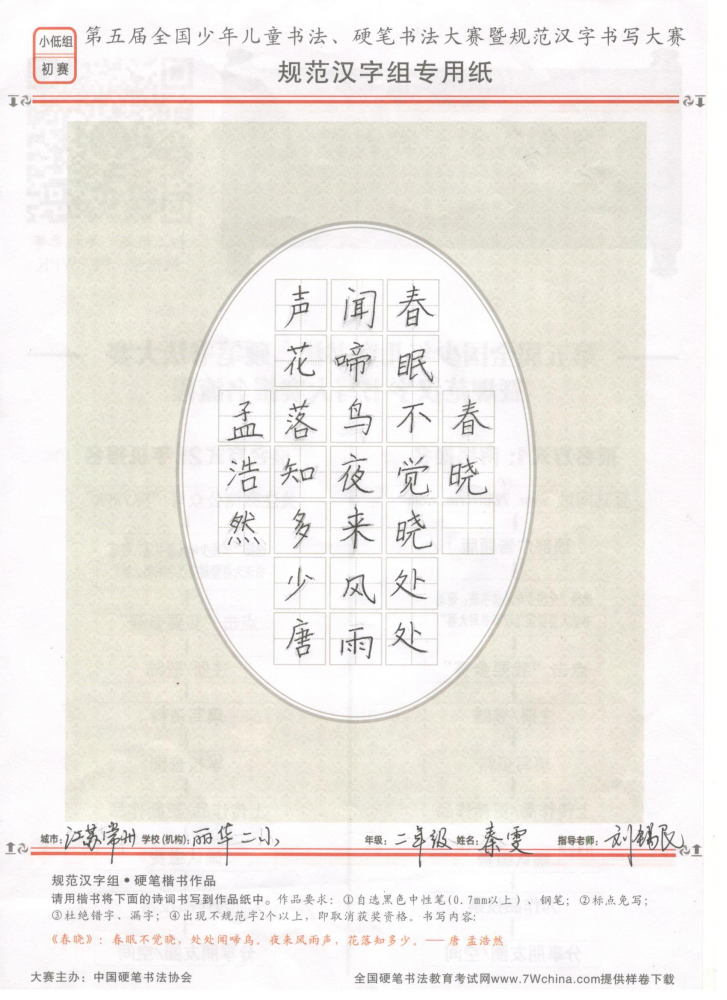 小低组
初赛
第五届全国少年儿童书法、硬笔书法大赛暨规范汉字书写大赛
规范汉字组专用纸
春晓
春眠不觉晓处处
闻啼鸟夜来风雨
声花落知多少唐
孟浩然
城市：江苏常州 学校(机构)：丽华二小 年级：二年级 姓名：秦雯 指导老师：刘锡民
规范汉字组•硬笔楷书作品
请用楷书将下面的诗词书写到作品纸中。作品要求：①自选黑色中性笔(0.7mm以上)、钢笔；②标点免写；
③杜绝错字、漏字；④出现不规范字2个以上，即取消获奖资格。书写内容：
《春晓》：春眠不觉晓，处处闻啼鸟。夜来风雨声，花落知多少。——唐 孟浩然
大赛主办：中国硬笔书法协会 全国硬笔书法教育考试网www.7Wchina.com提供样卷下载